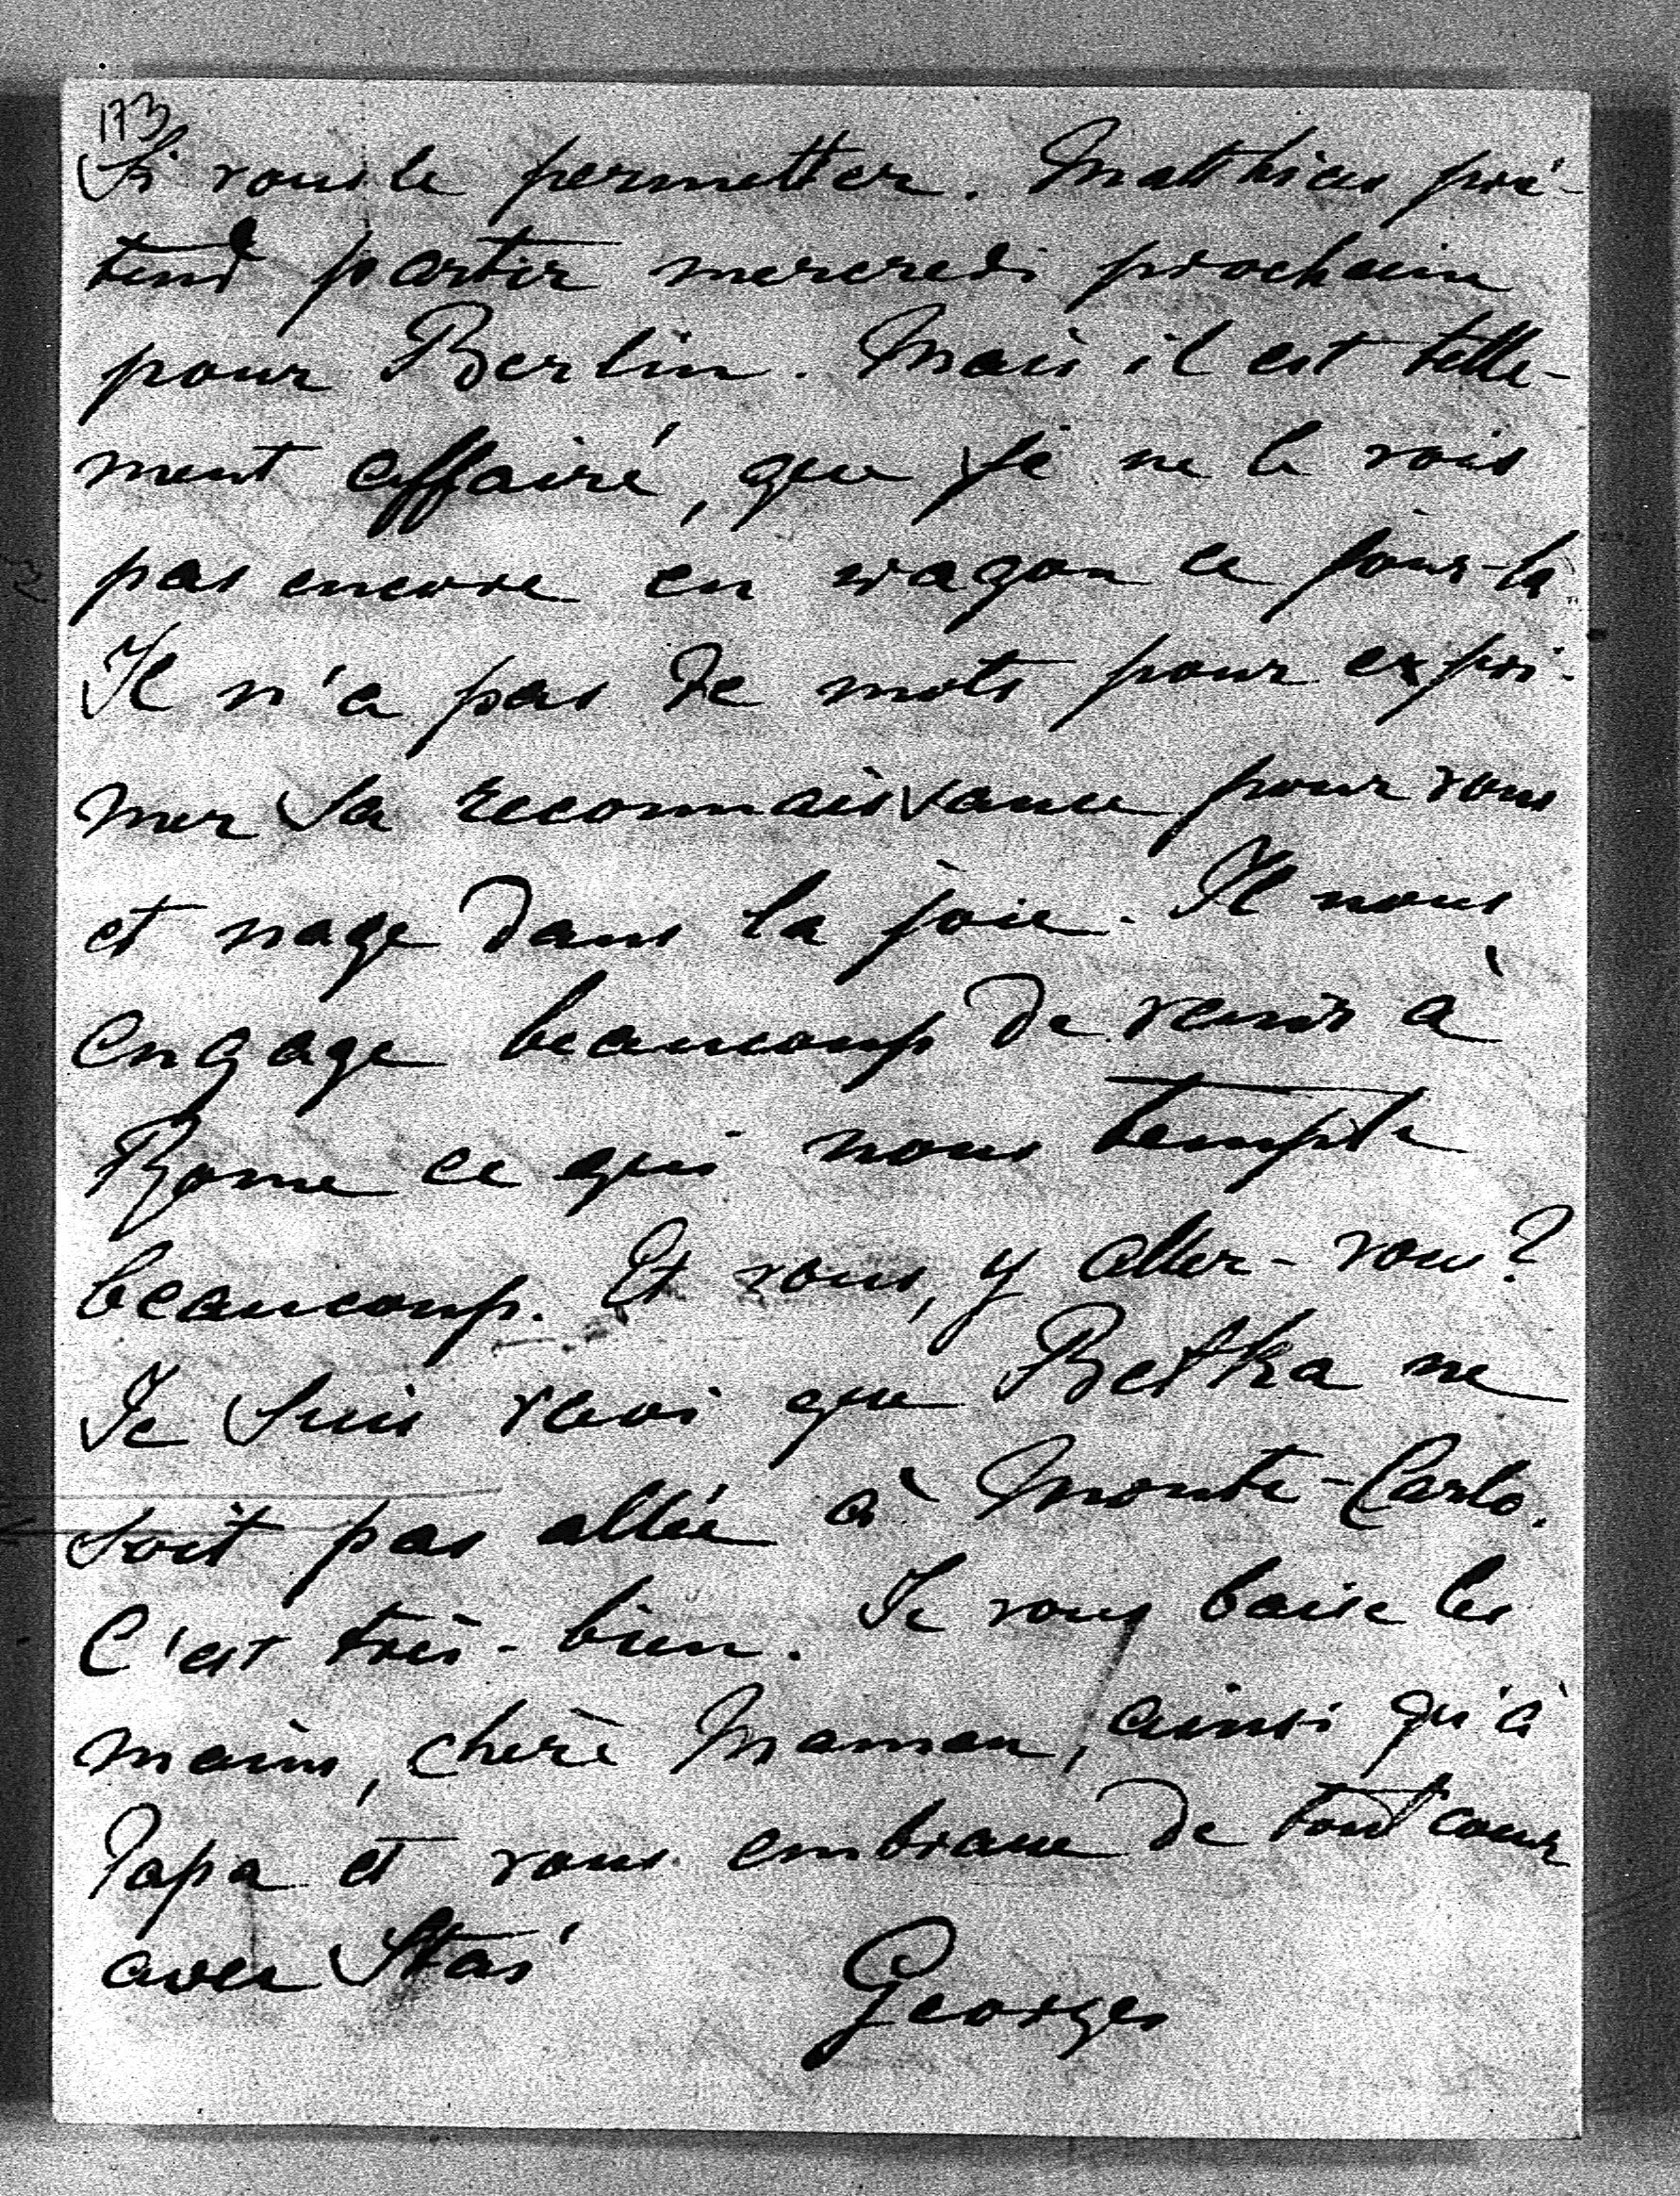 173
Si vous le permettez. Matthieu pré-
tend partir mercredi prochain
pour Berlin. Mais il est telle-
ment affairé, que je ne le vois
pas encore en wagon ce jour-là.
Il n'a pas de mots pour expri-
mer sa reconnaissance pour vous
et nage dans la joie. Il nous
engage beaucoup de venir à
Rome ce qui nous tempte
beaucoup. Et vous, y allez-vous?
Je suis ravi que Betka ne
soit pas allée à Monte-Carlo.
C'est très-bien. Je vous baise les
mains, chère Maman, ainsi qu'à
Papa et vous embrasse de tout coeur
avec Stas
Georges